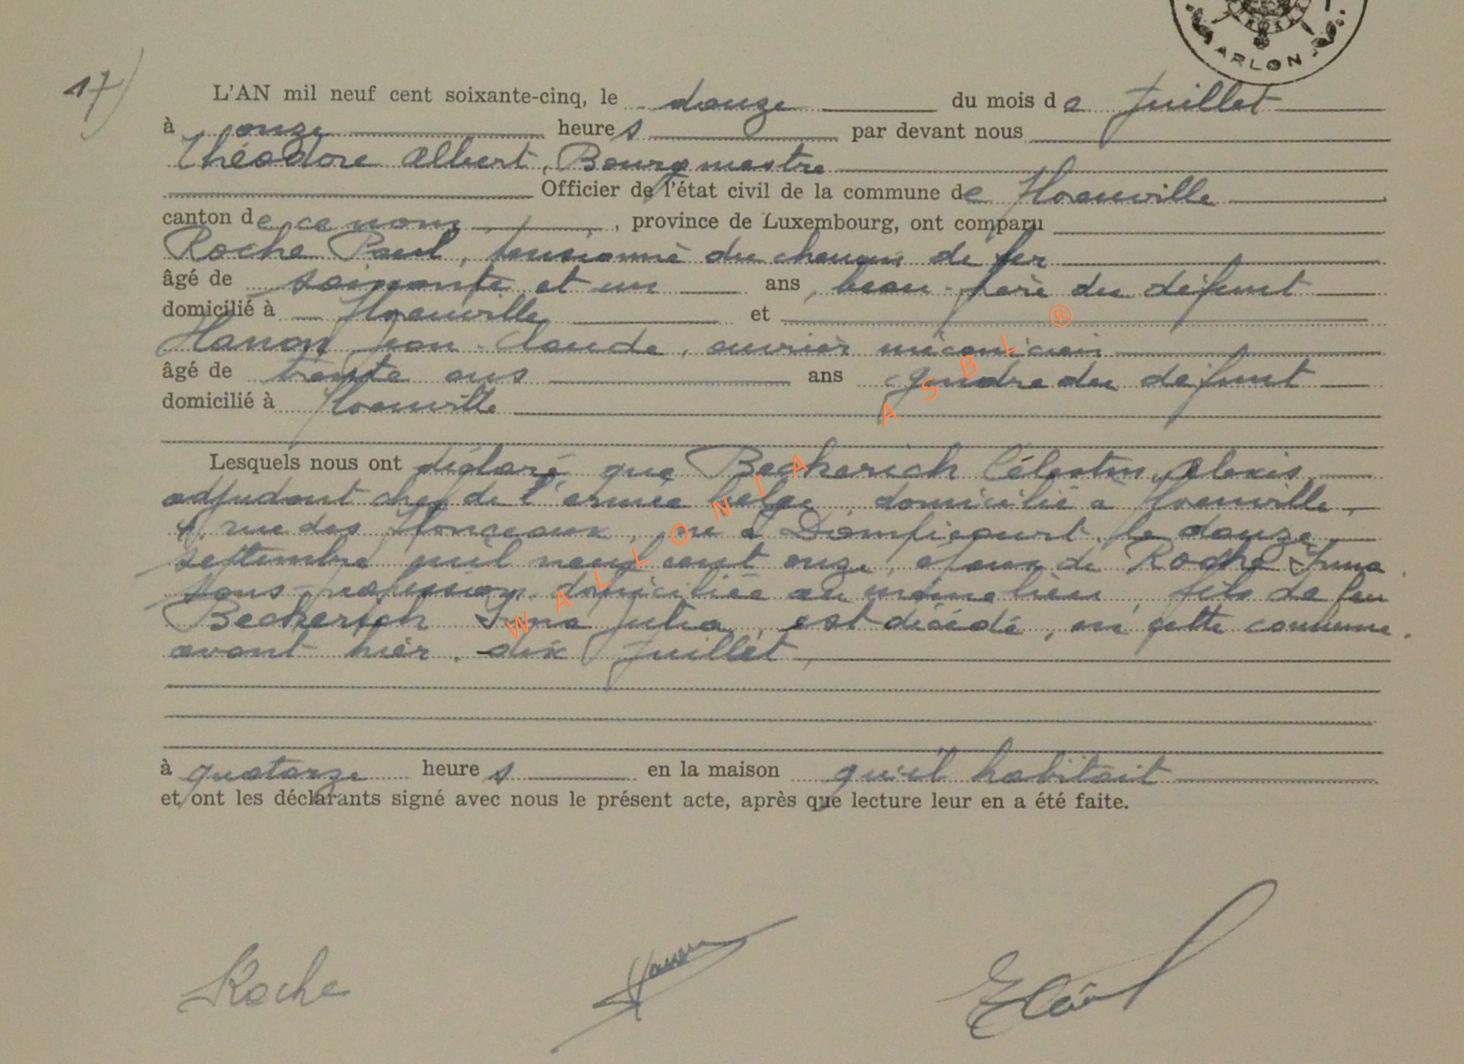 ARLON
17)
L'AN mil neuf cent soixante-cinq, le douze du mois de Juillet
à onze heures par devant nous
Théodore Albert, Bourgmestre
Officier de l'état civil de la commune de
canton de ce nom, province de Luxembourg, ont comparu
Roche Paul, pensionné du chemin de fer
âgé de soixante et un ans, beau-père du défunt
domicilié à et
Hanon Jean-Claude, ouvrier mécanicien
âgé de trente ans ans gendre du défunt
domicilié à
Lesquels nous ont déclaré que Becherich Célestin, Alexis
adjudant chef de l'armée belge, domicilié à
rue des né à le douze
septembre mil neuf cent onze, époux de Roche Irma
sans profession domiciliée au même lieu, fils de feu
Becherich Irma Julia, est décédé, en cette commune,
avant hier, dix Juillet,
à quatorze heures en la maison qu'il habitait
et ont les déclarants signé avec nous le présent acte, après que lecture leur en a été faite.
Roche Hanon
WALLONIA ASBL ®